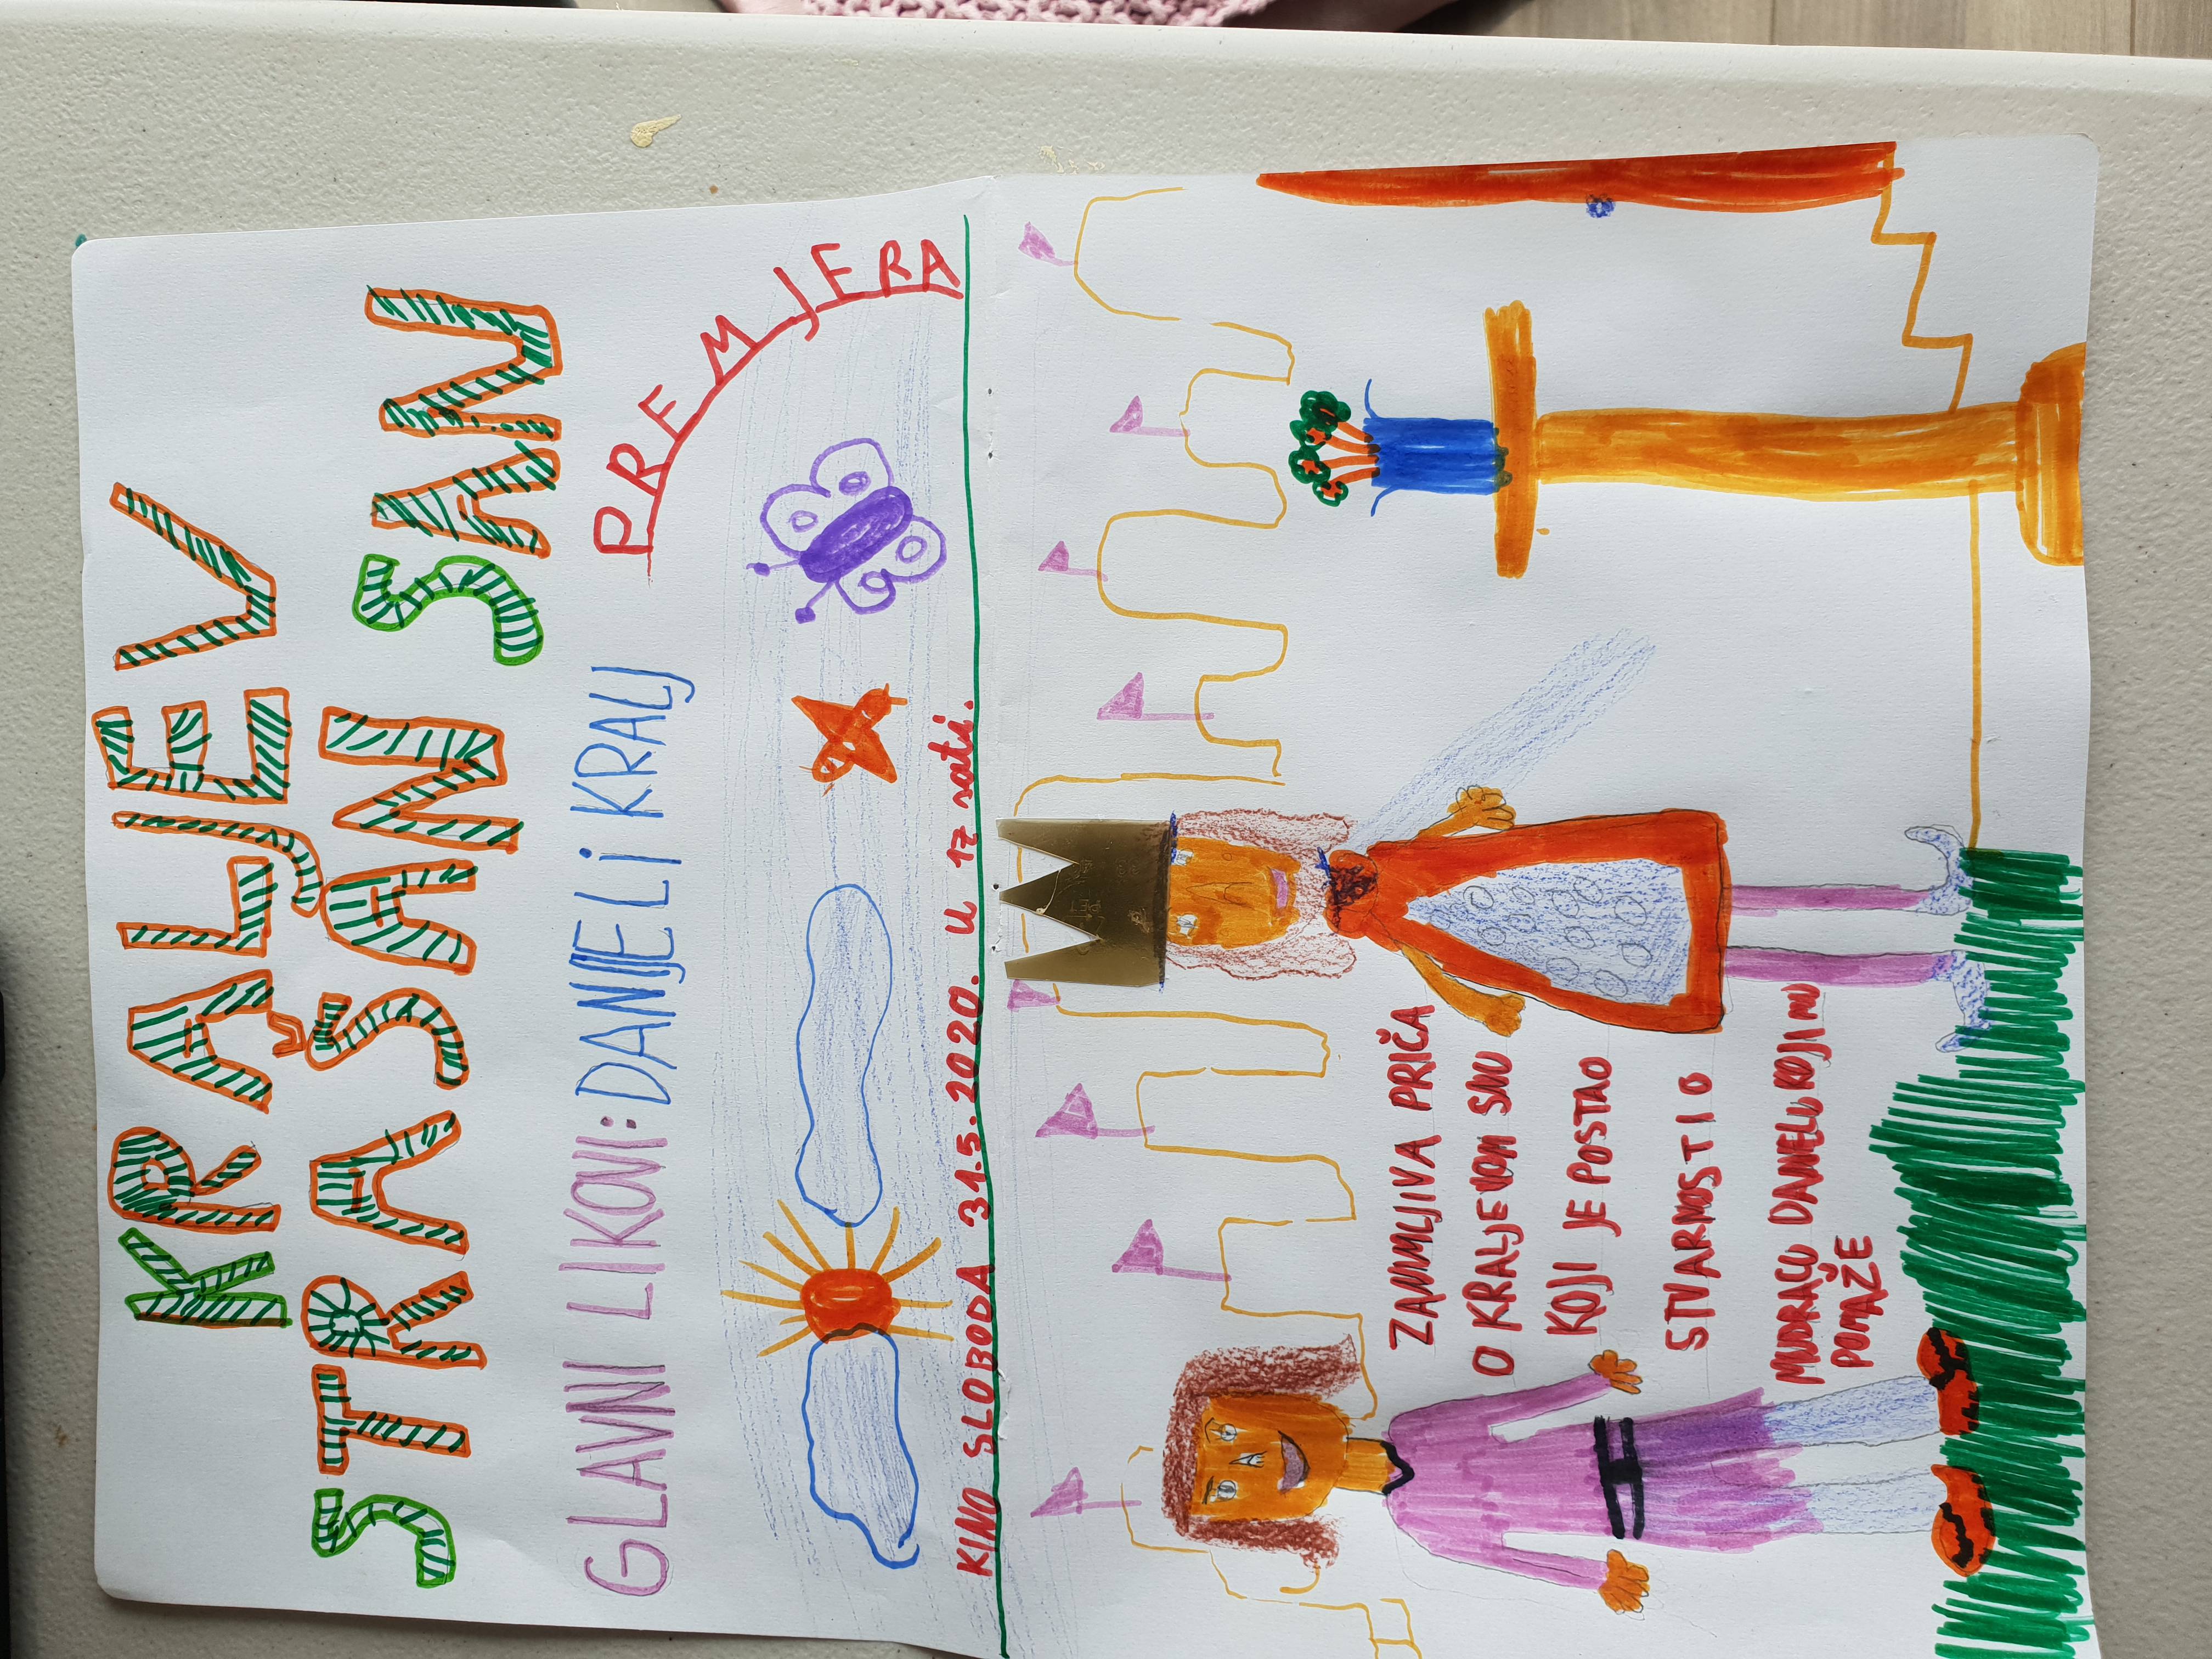 KRALJEV
STRAŠAN SAN
GLAVNI LIKOVI: DANIJEL i KRALJ
PREMJERA
KINO SLOBODA 31.5.2020. U 17 sati.
ZANIMLJIVA PRIČA
O KRALJEVOM SNU
KOJI JE POSTAO
STVARNOST I O
MUDRACU DANIJELU KOJI MU
POMAŽE